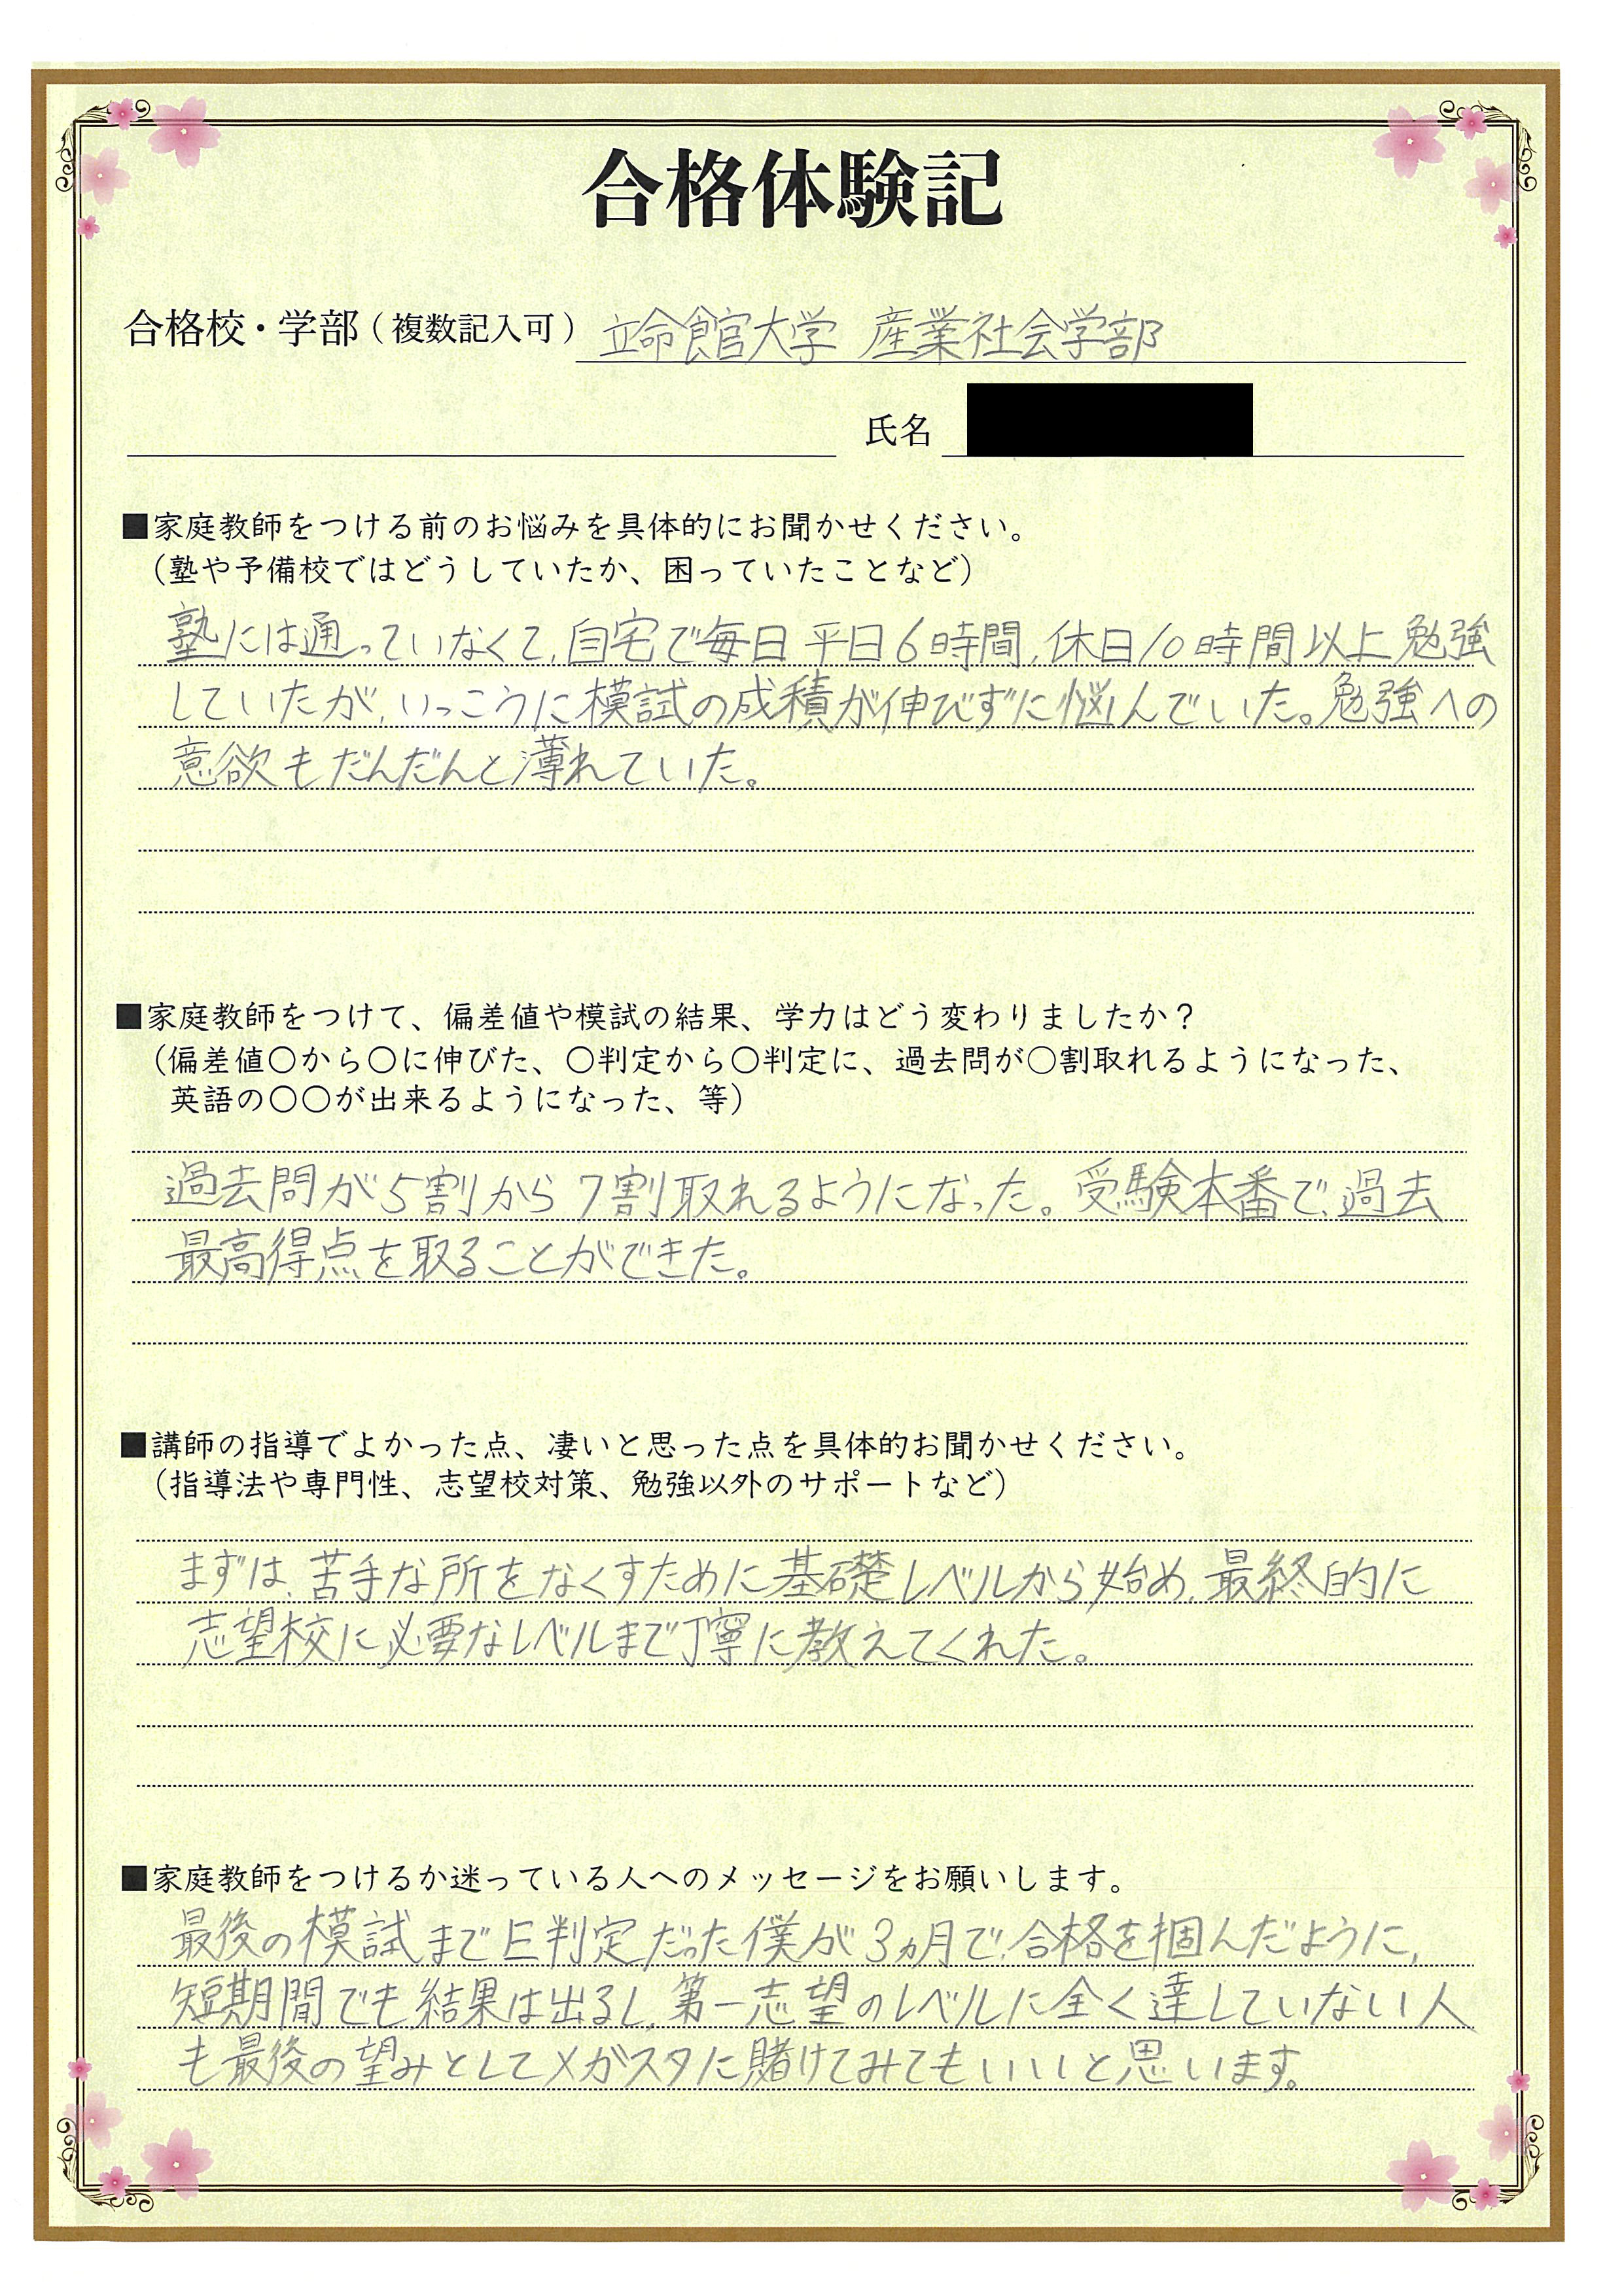 合格体験記
合格校・学部（複数記入可） 立命館大学 産業社会学部
氏名
■家庭教師をつける前のお悩みを具体的にお聞かせください。
（塾や予備校ではどうしていたか、困っていたことなど）
塾には通っていなくて、自宅で毎日平日6時間、休日10時間以上勉強
していたが、いっこうに模試の成積が伸びずに悩んでいた。勉強への
意欲もだんだんと薄れていた。
■家庭教師をつけて、偏差値や模試の結果、学力はどう変わりましたか？
（偏差値〇から〇に伸びた、〇判定から〇判定に、過去問が〇割取れるようになった、
英語の〇〇が出来るようになった、等）
過去問が5割から7割取れるようになった。受験本番で、過去
最高得点を取ることができた。
■講師の指導でよかった点、凄いと思った点を具体的お聞かせください。
（指導法や専門性、志望校対策、勉強以外のサポートなど）
まずは、苦手な所をなくすために基礎レベルから始め、最終的に
志望校に必要なレベルまで丁寧に教えてくれた。
■家庭教師をつけるか迷っている人へのメッセージをお願いします。
最後の模試までE判定だった僕が3ヵ月で、合格を掴んだように、
短期間でも結果は出るし、第一志望のレベルに全く達していない人
も最後の望みとしてメガスタに賭けてみてもいいと思います。